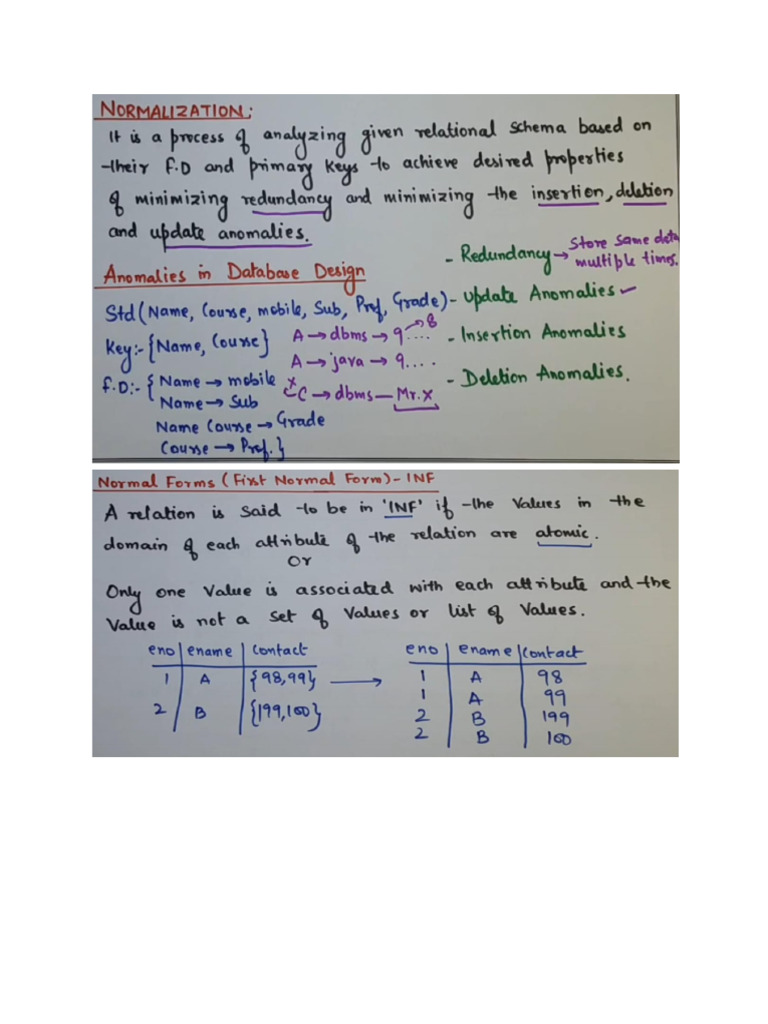 NORMALIZATION:
It is a process of analyzing given relational schema based on
their F.D and primary keys to achieve desired properties
of minimizing redundancy and minimizing the insertion, deletion
and update anomalies.
Anomalies in Database Design
- Redundancy → Store same data
multiple times.
Std (Name, Course, mobile, Sub, Prof, Grade)
- Update Anomalies ✓
Key:- {Name, Course}
A → dbms → 9 .... → 8
- Insertion Anomalies
A → java → 9 ....
F.D:- { Name → mobile
x C → dbms — Mr.X
- Deletion Anomalies.
Name → Sub
Name Course → Grade
Course → Prof. }
Normal Forms (First Normal Form) - 1NF
A relation is said to be in '1NF' if the values in the
domain of each attribute of the relation are atomic.
Or
Only one value is associated with each attribute and the
value is not a set of values or list of values.
eno | ename | contact
1 | A | {98,99} →
2 | B | {199,100}
eno | ename | contact
1 | A | 98
1 | A | 99
2 | B | 199
2 | B | 100